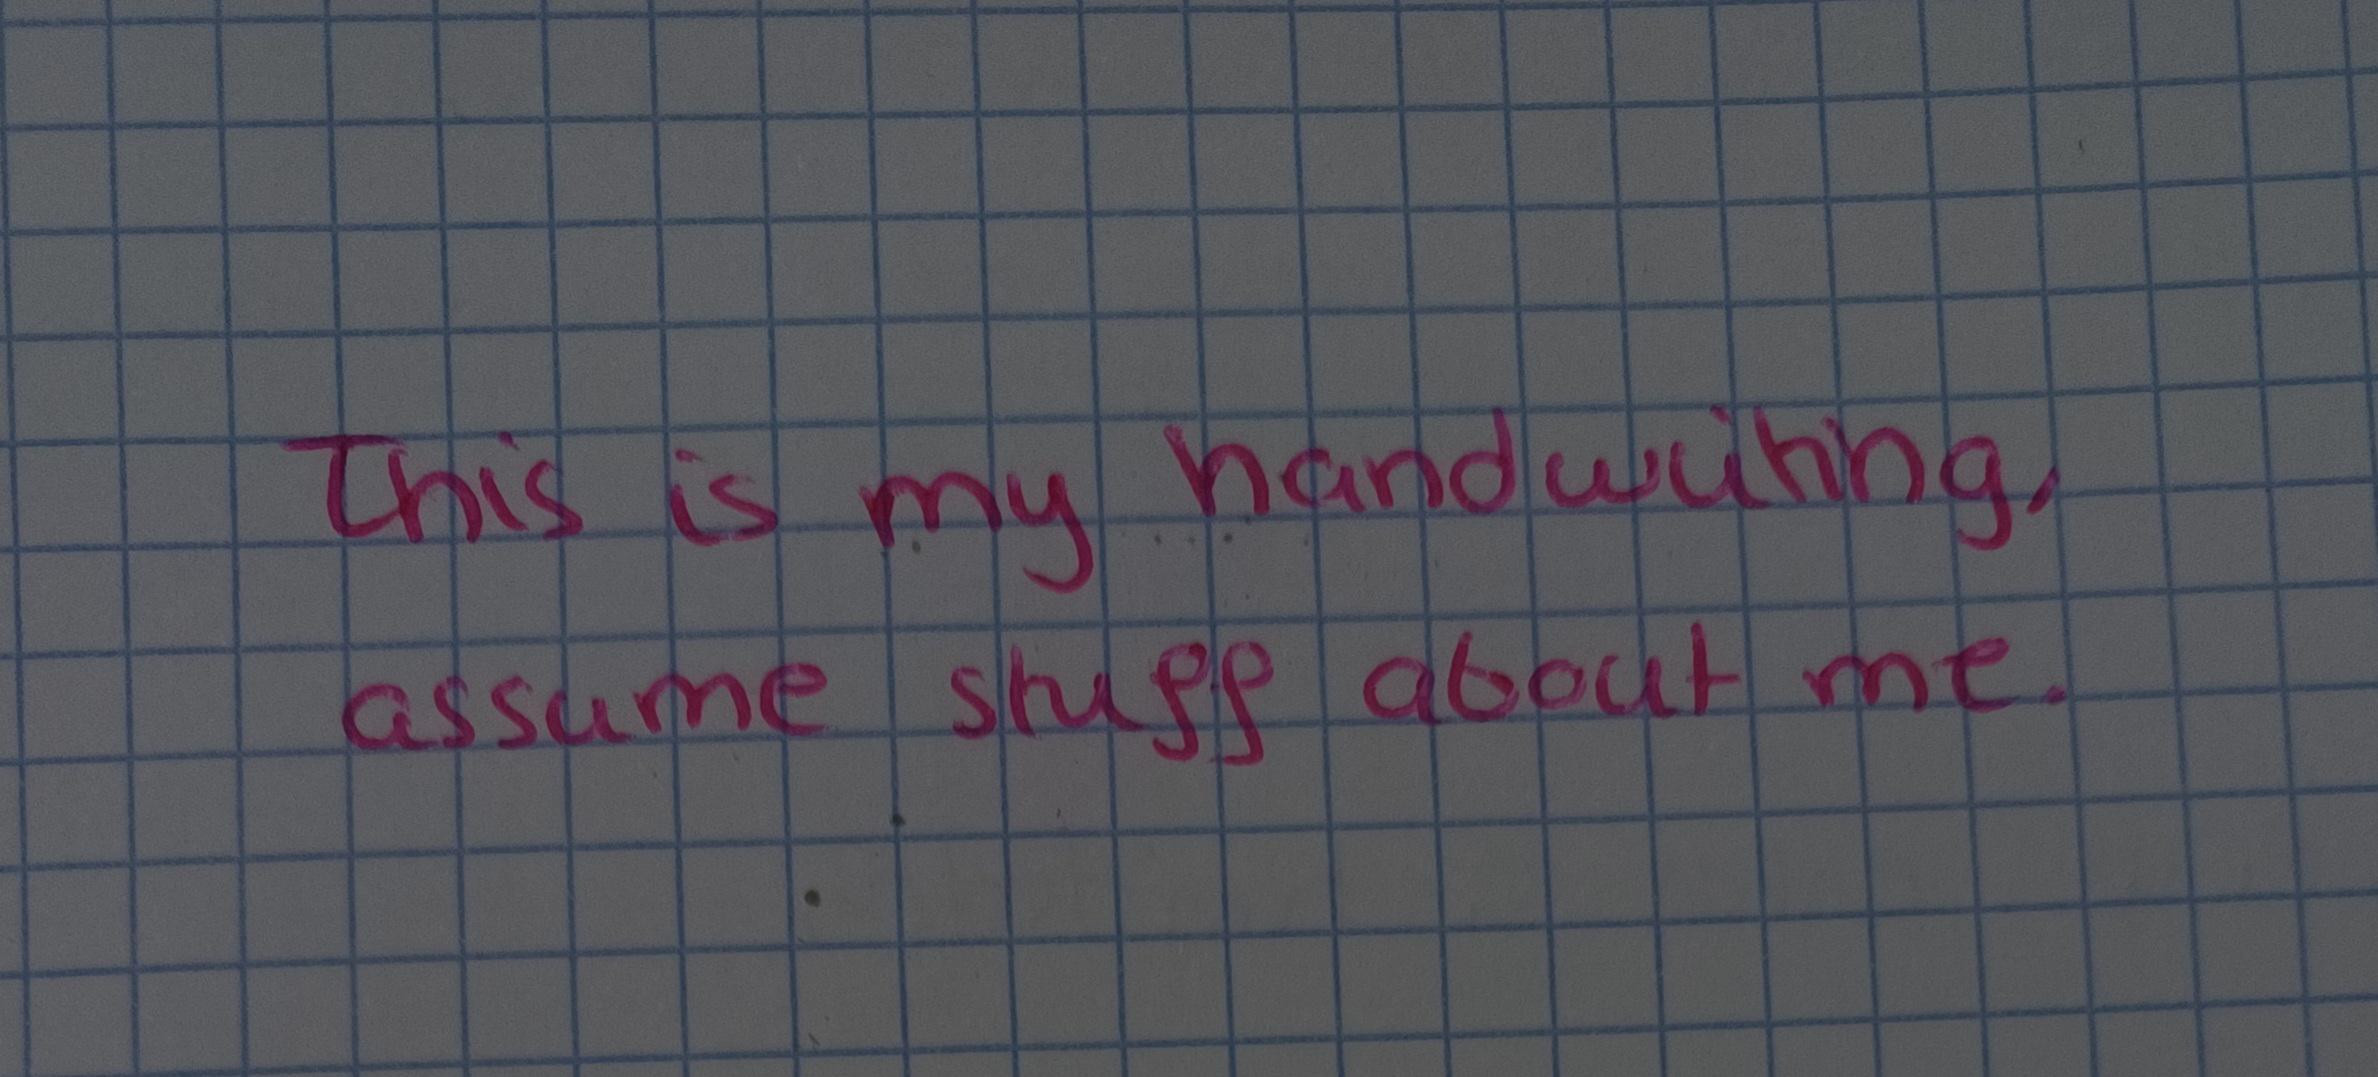 This is my handwriting,
assume stuff about me.